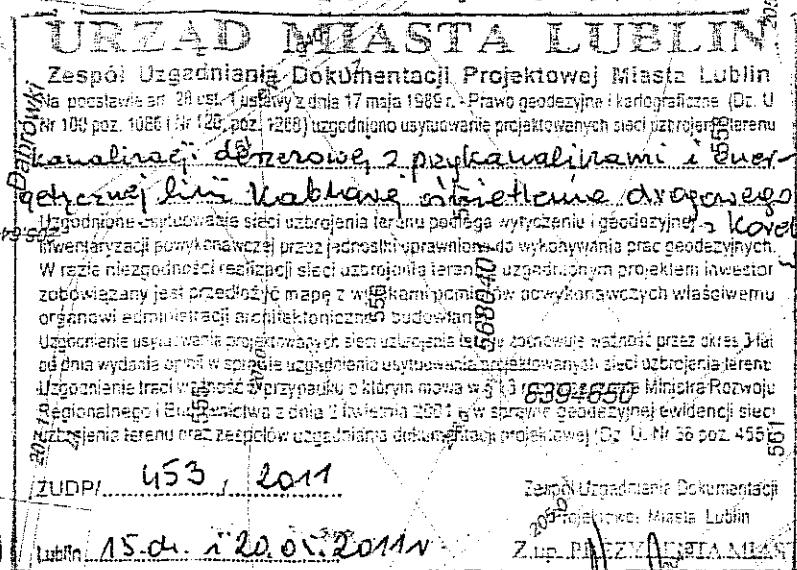 URZĄD MIASTA LUBLIN
Zespół Uzgadniania Dokumentacji Projektowej Miasta Lublin
Na podstawie art. 28 ust. 1 ustawy z dnia 17 maja 1989 r. - Prawo geodezyjne i kartograficzne (Dz. U
Nr 100 poz. 1086 i Nr 120, poz. 1268) uzgodniono usytuowanie projektowanych sieci uzbrojenia terenu
kanalizacji deszczowej z przykanalikami i ener-
getycznej linii kablowej oświetlenia drogowego
Uzgodnione usytuowanie sieci uzbrojenia terenu podlega wytyczeniu i geodezyjnej
inwentaryzacji powykonawczej przez jednostki uprawnione do wykonywania prac geodezyjnych.
W razie niezgodności realizacji sieci uzbrojenia terenu z uzgodnionym projektem inwestor
zobowiązany jest przedłożyć mapę z wynikami pomiarów powykonawczych właściwemu
organowi administracji architektoniczno budowlanej
Uzgodnienie usytuowania projektowanych sieci uzbrojenia terenu zachowuje ważność przez okres 3 lat
od dnia wydania opinii w sprawie uzgodnienia usytuowania projektowanych sieci uzbrojenia terenu
Uzgodnienie traci ważność w przypadku o którym mowa w § 13 Ministra Rozwoju
Regionalnego i Budownictwa z dnia 2 kwietnia 2001 r. w sprawie geodezyjnej ewidencji sieci
uzbrojenia terenu oraz zespołów uzgadniania dokumentacji projektowej (Dz. U. Nr 38 poz. 455)
ZUDP/ 453 / 2011
Zespół Uzgadniania Dokumentacji
Projektowej Miasta Lublin
Lublin 15.04. i 20.05.2011r
Z up. PREZYDENTA MIAST
Dąbrówki
568040
6394650
556
561